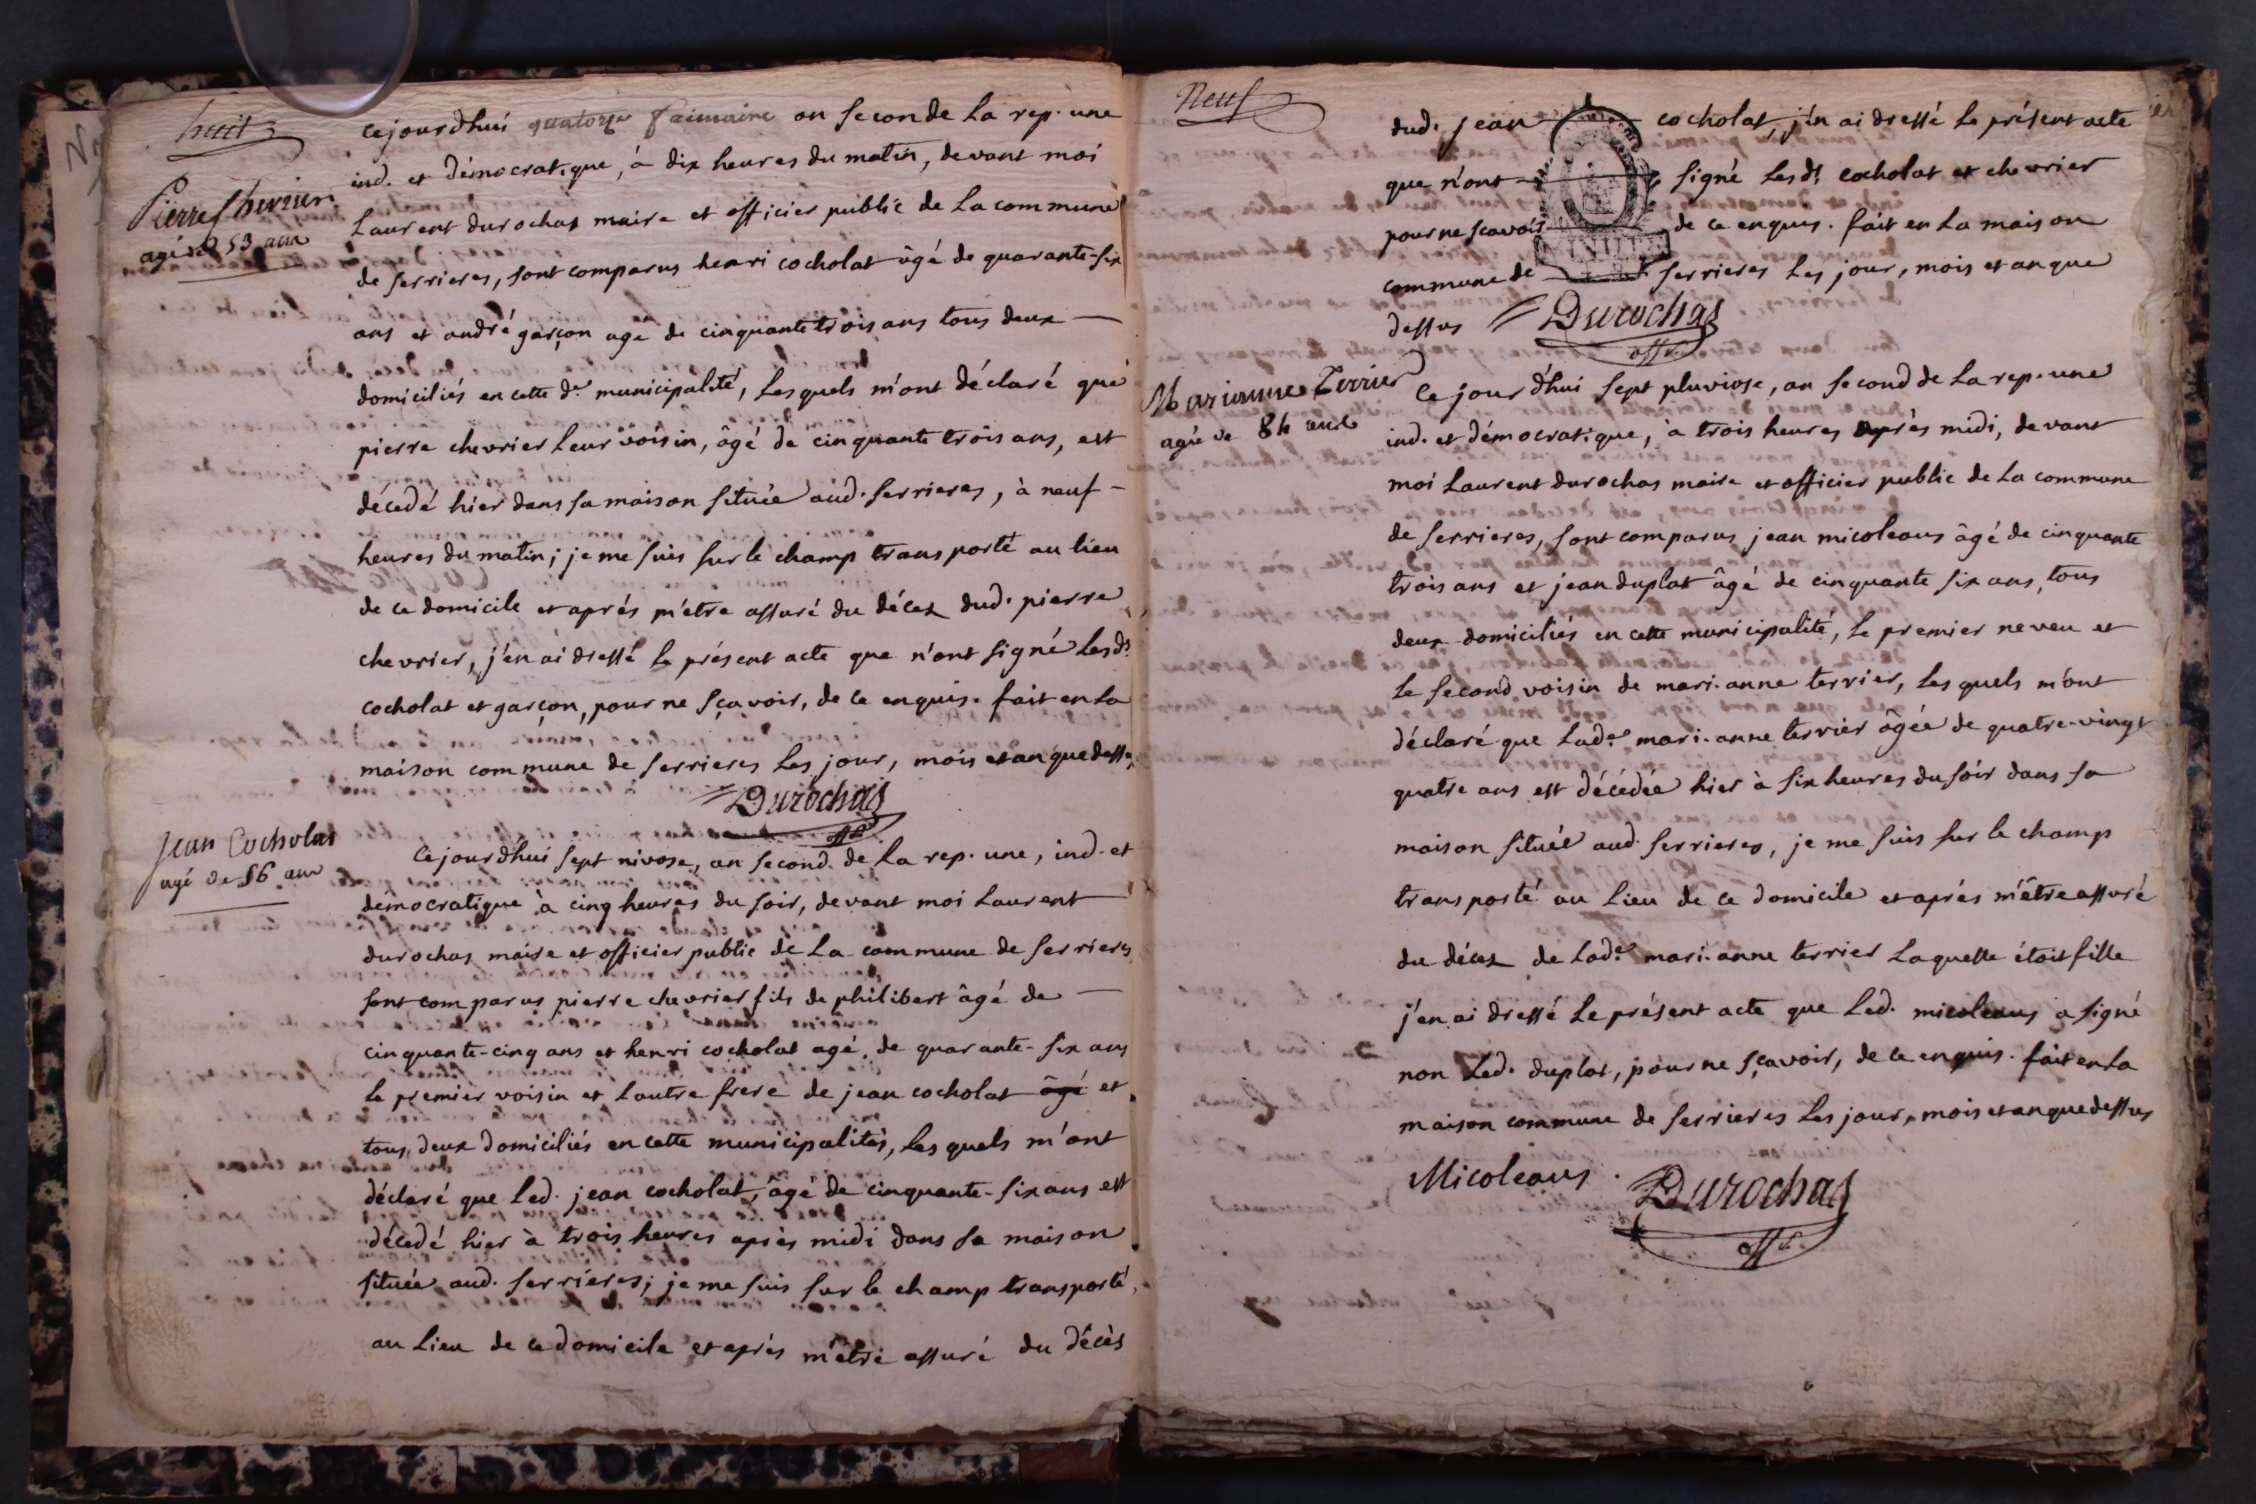 huit
Pierre Chevrier
agé de 53 ans
cejourdhui quatorze frimaire an second de la rep. une
ind. et démocratique, à dix heures du matin, devant moi
Laurent durochas maire et officier public de la commune
de serrieres, sont comparus henri cocholat âgé de quarante-six
ans et andré garçon age de cinquante trois ans tous deux —
domiciliés en cette de municipalité, lesquels m'ont déclaré que
pierre chevrier leur voisin, âgé de cinquante trois ans, est
décedé hier dans sa maison située aud. serrieres, à neuf —
heures du matin; je me suis sur le champ transporté au lieu
de ce domicile et aprés m'etre assuré du décez dud. pierre
chevrier, j'en ai dressé le présent acte que n'ont signé lesds
cocholat et garçon, pour ne sçavoir, de ce enquis. fait en la
maison commune de serrieres les jour, mois et an que dessus
Durochas
off. p.
Jean Cocholat
agé de 56 ans
Cejourdhui sept nivose, an second de la rep. une, ind. et
démocratique à cinq heures du soir, devant moi Laurent
durochas maire et officier public de la commune de serrieres
sont comparus pierre chevrier fils de philibert âgé de —
cinquante-cinq ans et henri cocholat agé de quarante-six ans
le premier voisin et l'autre frere de jean cocholat âgé et
tous deux domiciliés en cette municipalité, lesquels m'ont
déclaré que led. jean cocholat, âgé de cinquante-six ans est
décedé hier à trois heures après midi dans sa maison
située aud. serrieres; je me suis sur le champ transporté
au lieu de ce domicile et aprés m'être assuré du décès
Neuf
dud. jean cocholat, j'en ai dressé le présent acte
que n'ont signé lesds cocholat et chevrier
pour ne scavoir de ce enquis. fait en la maison
commune de serrieres les jour, mois et an que
dessus Durochas
off. p.
Marianne Terrier
agée de 84 ans
Ce jourd'hui sept pluviose, an second de la rep. une
ind. et démocratique, à trois heures après midi, devant
moi Laurent durochas maire et officier public de la commune
de serrieres, sont comparus jean micoleaus âgé de cinquante
trois ans et jean duplat âgé de cinquante six ans, tous
deux domiciliés en cette municipalité, le premier neveu et
le second voisin de mari-anne terrier, lesquels m'ont
déclaré que lade mari-anne terrier âgée de quatre-vingt
quatre ans est décédée hier à six heures du soir dans sa
maison située aud. serrieres, je me suis sur le champ
transporté au lieu de ce domicile et aprés m'être assuré
du décez de lade mari-anne terrier laquelle étoit fille
j'en ai dressé le présent acte que led. micoleaus a signé
non led. duplat, pour ne sçavoir, de ce enquis. fait en la
maison commune de serrieres les jour, mois et an que dessus
Micoleaus. Durochas
off. p.